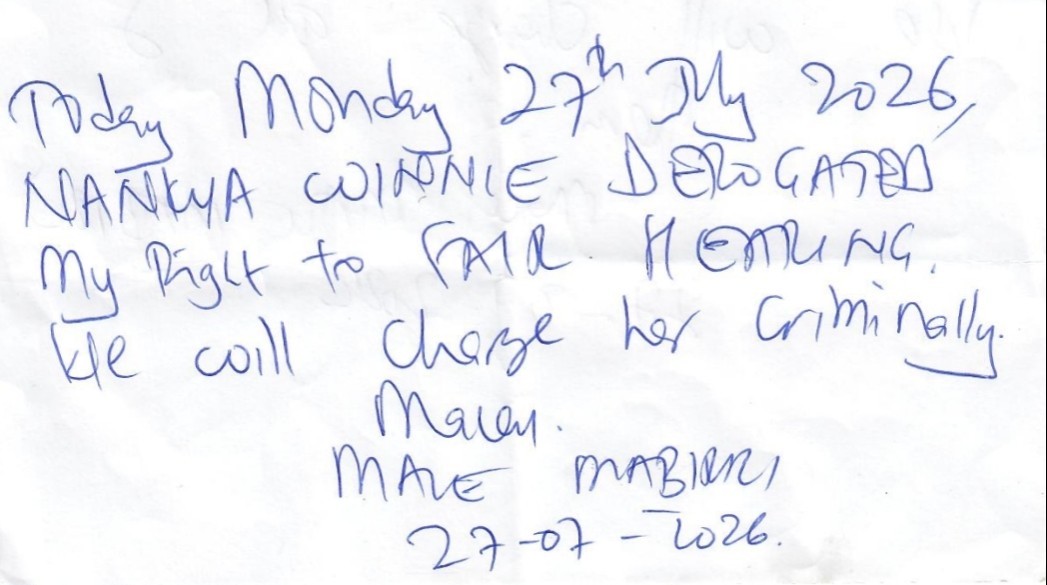 Today Monday 27th July 2026,
NANKYA WINNIE DEROGATED
My Right to FAIR HEARING.
We will charge her Criminally.
MALE MABIRIZI
27-07-2026.